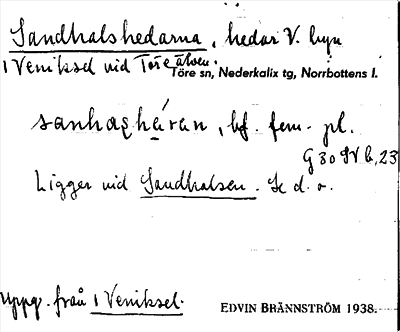 Sandhalshedarna, hedar V. byn
1 Veniksel vid Töreälven.
Töre sn, Nederkalix tg, Norrbottens l.
sanhaʂhẹ́ran, bf. fem. pl.
G 30 SV b, 23
Ligger vid Sandhalsen. Se d. o.
Uppg. från 1 Veniksel.
EDVIN BRÄNNSTRÖM 1938.